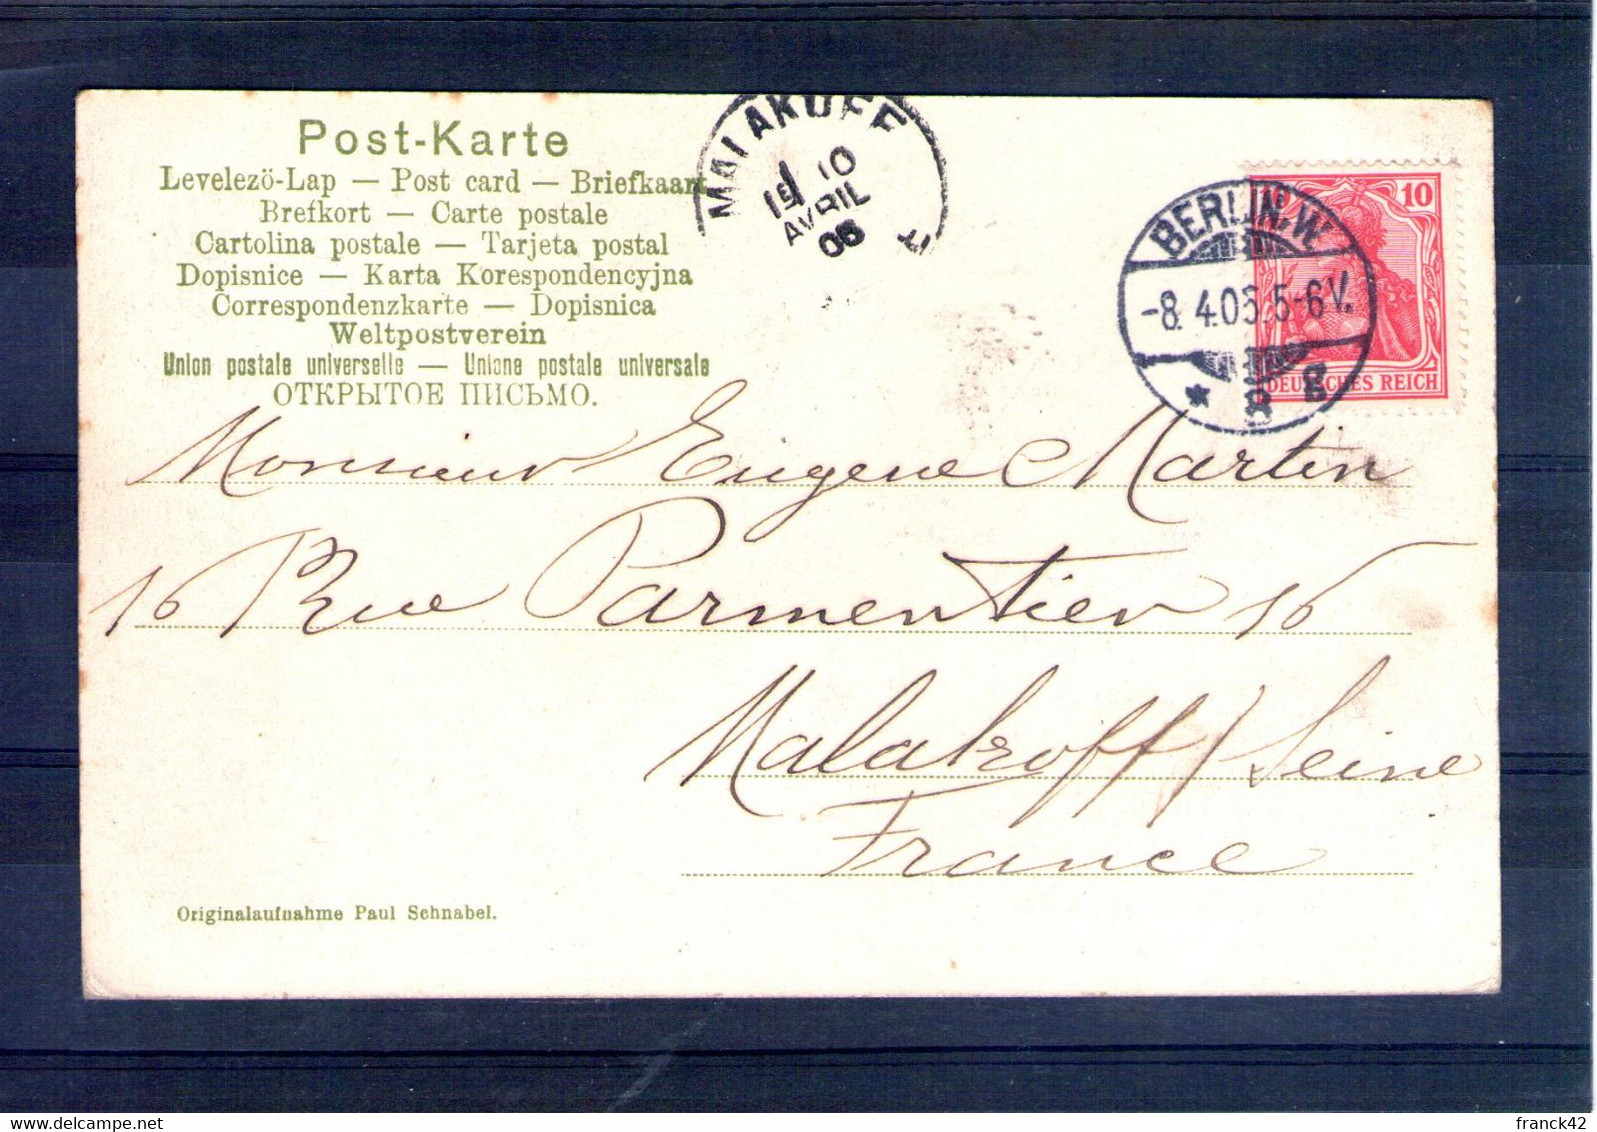 Post-Karte
Levelezö-Lap — Post card — Briefkaart
Brefkort — Carte postale
Cartolina postale — Tarjeta postal
Dopisnice — Karta Korespondencyjna
Correspondenzkarte — Dopisnica
Weltpostverein
Union postale universelle — Unione postale universale
ОТКРЫТОЕ ПИСЬМО.
MALAKOFF
10
AVRIL
06
BERLIN.W.
-8.4.06.5-6V.
* 8 g
10
DEUTSCHES REICH
Monsieur Eugene Martin
16 Rue Parmentier 16
Malakoff / Seine
France
Originalaufnahme Paul Schnabel.
franck42